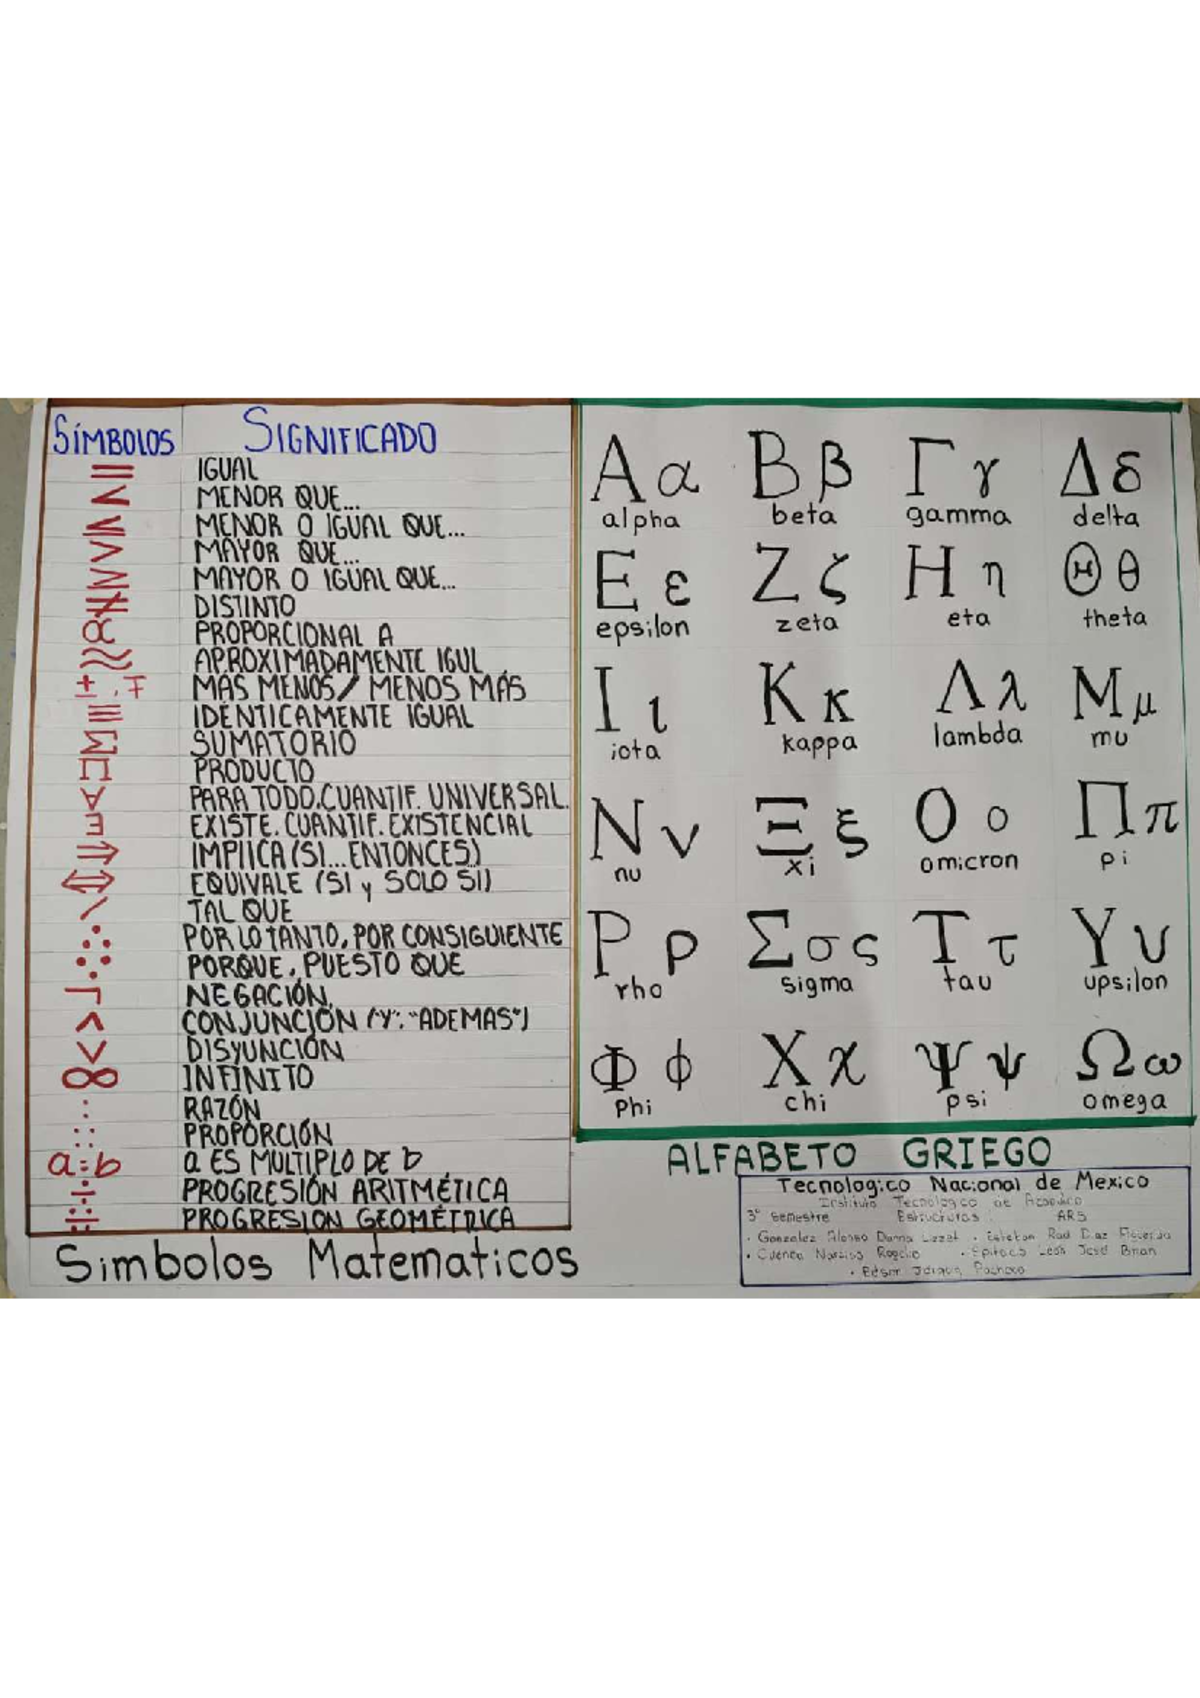 SÍMBOLOS SIGNIFICADO
= IGUAL
< MENOR QUE...
≤ MENOR O IGUAL QUE...
> MAYOR QUE...
≥ MAYOR O IGUAL QUE...
≠ DISTINTO
∝ PROPORCIONAL A
≈ APROXIMADAMENTE IGUL
± ; ∓ MAS MENOS / MENOS MÁS
≡ IDÉNTICAMENTE IGUAL
∑ SUMATORIO
∏ PRODUCTO
∀ PARA TODO.CUANTIF. UNIVERSAL.
∃ EXISTE. CUANTIF. EXISTENCIAL
⇒ IMPIICA (SI...ENTONCES)
⇔ EQUIVALE (SI y SOLO SI)
\ TAL QUE
∴ POR LO TANTO, POR CONSIGUIENTE
∵ PORQUE, PUESTO QUE
¬ NEGACIÓN
< CONJUNCIÓN ("Y": "ADEMAS")
> DISYUNCIÓN
∞ INFINITO
: RAZÓN
:: PROPORCIÓN
a÷b a ES MULTIPLO DE b
÷ PROGRESIÓN ARITMÉTICA
PROGRESION GEOMÉTRICA
Simbolos Matematicos
Α α Β β Γ γ Δ δ
alpha beta gamma delta
Ε ε Ζ ζ Η η Θ θ
epsilon zeta eta theta
Ι ι Κ κ Λ λ Μ μ
iota kappa lambda mu
Ν ν Ξ ξ Ο ο Π π
nu xi omicron pi
Ρ ρ Σ σ ς Τ τ Υ υ
rho sigma tau upsilon
Φ ϕ Χ χ Ψ ψ Ω ω
Phi chi psi omega
ALFABETO GRIEGO
Tecnologico Nacional de Mexico
Instituto Tecnologico de Acapulco
3° Semestre Estructuras AR3
· Gonzalez Alonso Danna · Raul
· Cuenca Narciso Rogelio · León José Brian
· Pacheco